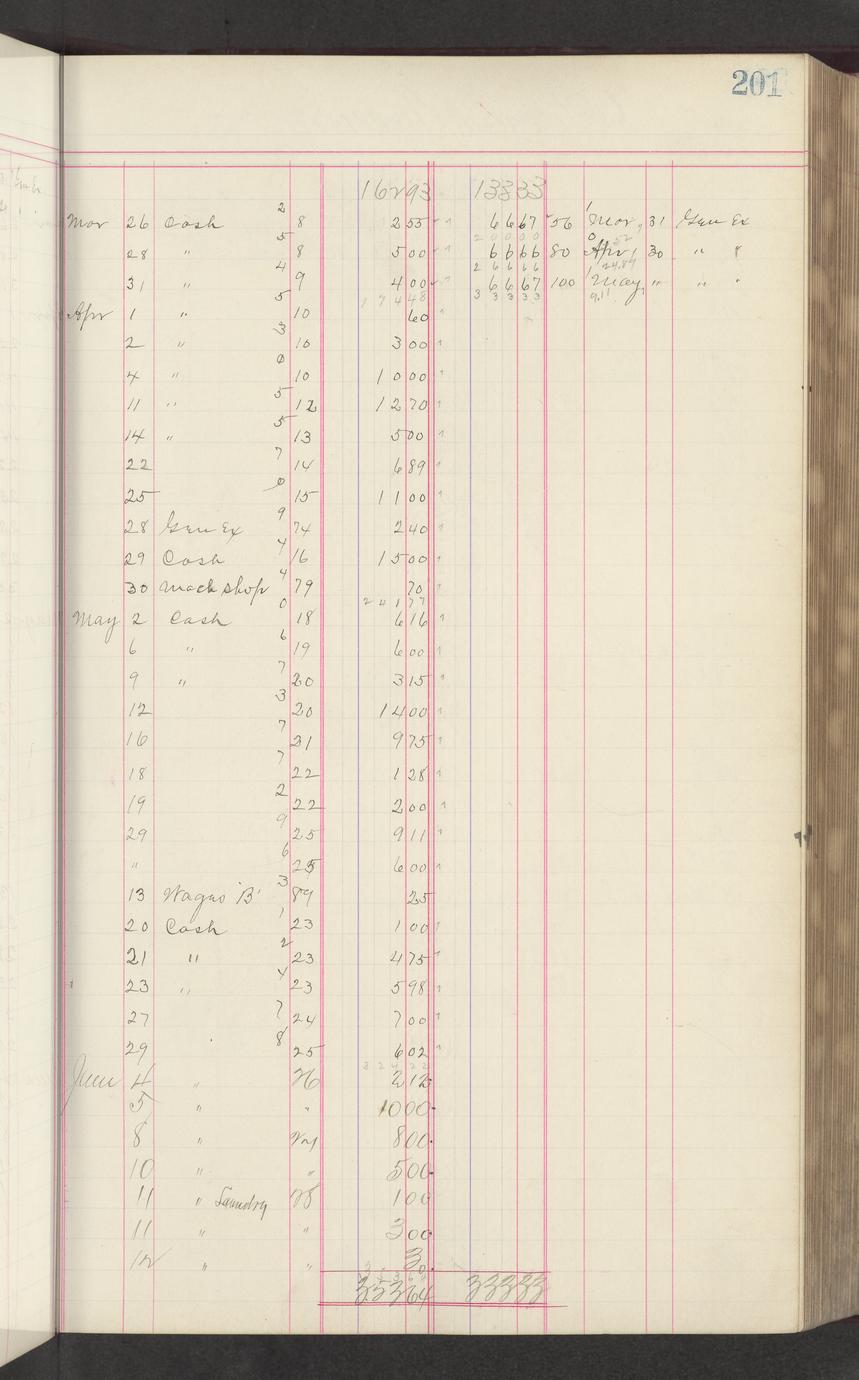 201
162 93 133 33
2
Mar 26 Cash 8 2 55 66 67 56 Mar, 31 Gen Ex
5 200 00
28 " 8 5 00 66 66 80 Apr, 30 " "
4 266 66 24.84
31 " 9 4 00 66 67 100 May, " " "
5 174 48 333 33 9.11
Apr 1 " 10 60
3
2 " 10 3 00
0
4 " 10 10 00
5
11 " 12 12 70
5
14 " 13 5 00
7
22 14 6 89
0
25 15 11 00
9
28 Gen Ex 74 2 40
4
29 Cash 16 15 00
4
30 Mach Shop 79 70
0 241 77
May 2 Cash 18 6 16
6
6 " 19 6 00
7
9 " 20 3 15
3
12 20 14 00
7
16 21 9 75
7
18 22 1 28
2
19 22 2 00
9
29 25 9 11
6
" 25 6 00
3
13 Wages 'B' 89 25
1
20 Cash 23 1 00
2
21 " 23 4 75
4
23 " 23 5 98
7
27 24 7 00
8
29 25 6 02
June 4 " 26 2 12
5 " " 10 00
8 " 27 8 00
10 " " 5 00
11 " Laundry 28 1 00
11 " " 3 00
12 " " 30
353 64 333 33